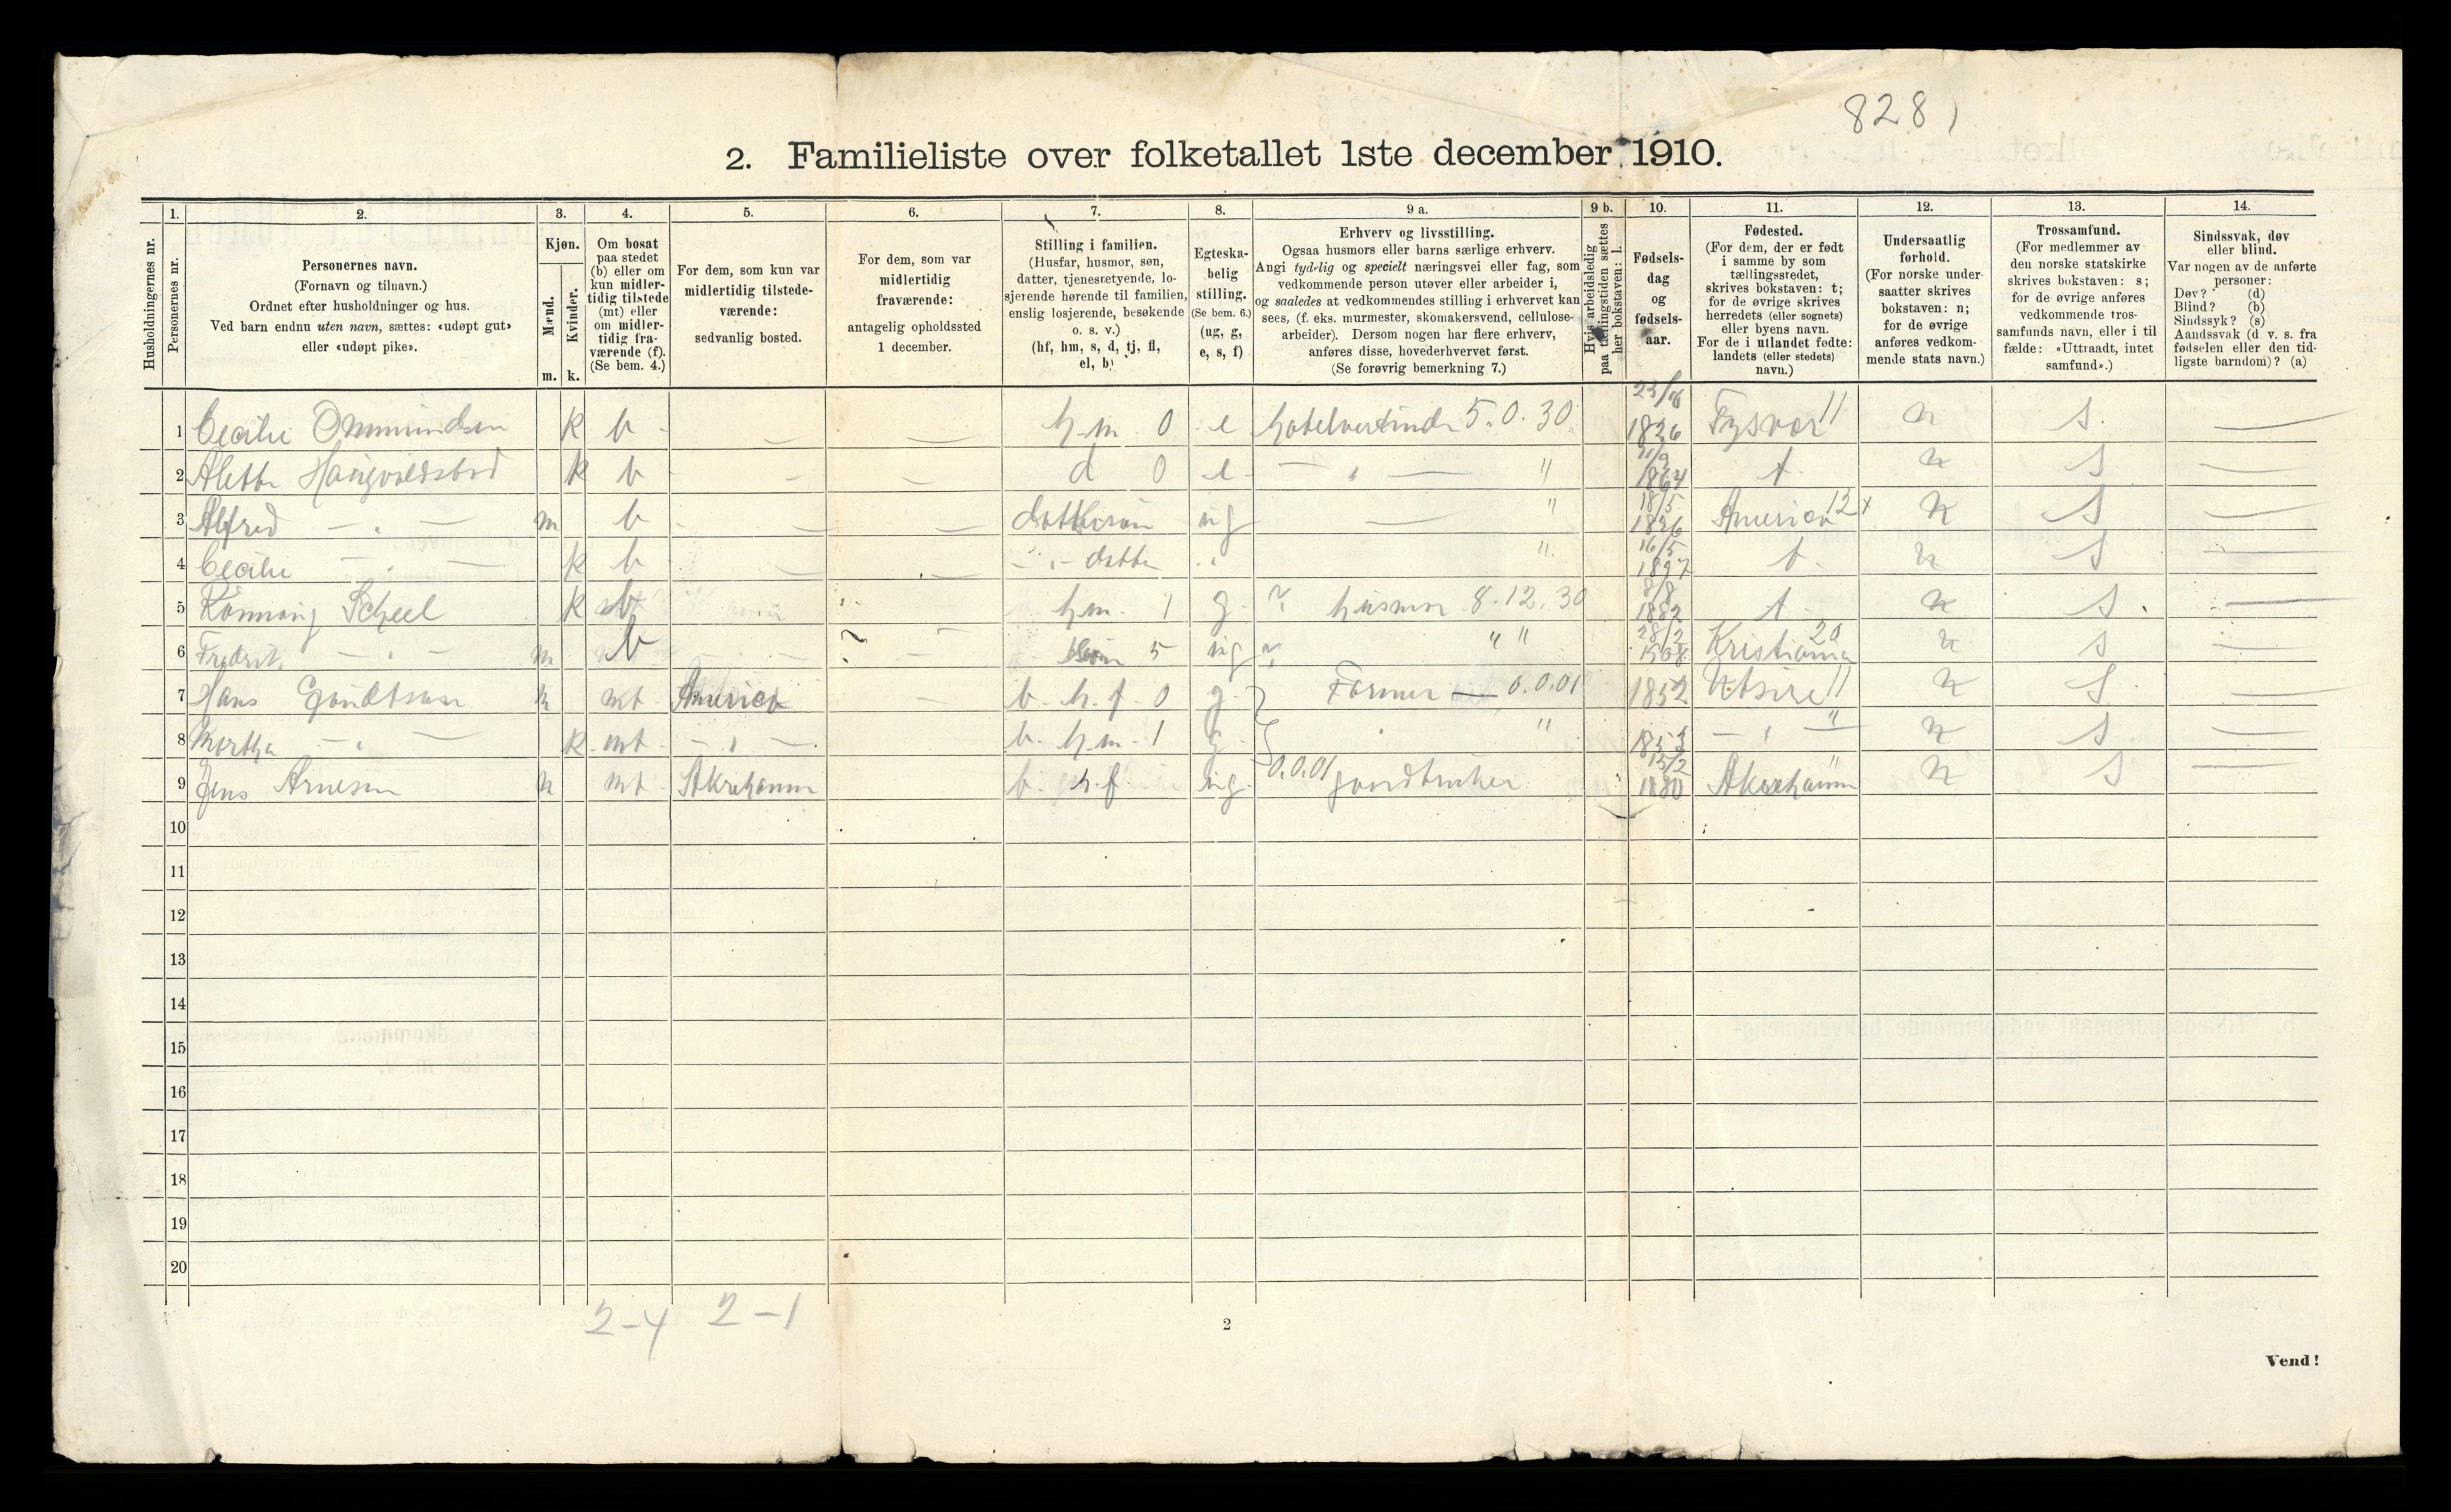 8281
2. Familieliste over folketallet 1ste december 1910.
Husholdningernes nr.
1. 2. 3. 4. 5. 6. 7. 8. 9 a. 9 b. 10. 11. 12. 13. 14.
Personernes nr.
Personernes navn.
(Fornavn og tilnavn.)
Ordnet efter husholdninger og hus.
Ved barn endnu uten navn, sættes: «udøpt gut»
eller «udøpt pike».
Kjøn.
Mænd.
Kvinder.
m. k.
Om bosat
paa stedet
(b) eller om
kun midler-
tidig tilstede
(mt) eller
om midler-
tidig fra-
værende (f).
(Se bem. 4.)
For dem, som kun var
midlertidig tilstede-
værende:
sedvanlig bosted.
For dem, som var
midlertidig
fraværende:
antagelig opholdssted
1 december.
Stilling i familien.
(Husfar, husmor, søn,
datter, tjenestetyende, lo-
sjerende hørende til familien,
enslig losjerende, besøkende
o. s. v.)
(hf, hm, s, d, tj, fl,
el, b)
Egteska-
belig
stilling.
(Se bem. 6.)
(ug, g,
e, s, f)
Erhverv og livsstilling.
Ogsaa husmors eller barns særlige erhverv.
Angi tydelig og specielt næringsvei eller fag, som
vedkommende person utøver eller arbeider i,
og saaledes at vedkommendes stilling i erhvervet kan
sees, (f. eks. murmester, skomakersvend, cellulose-
arbeider). Dersom nogen har flere erhverv,
anføres disse, hovederhvervet først.
(Se forøvrig bemerkning 7.)
Hvis arbeidsledig
paa tællingstiden sættes
her bokstaven: l.
Fødsels-
dag
og
fødsels-
aar.
Fødested.
(For dem, der er født
i samme by som
tællingsstedet,
skrives bokstaven: t;
for de øvrige skrives
herredets (eller sognets)
eller byens navn.
For de i utlandet fødte:
landets (eller stedets)
navn.)
Undersaatlig
forhold.
(For norske under-
saatter skrives
bokstaven: n;
for de øvrige
anføres vedkom-
mende stats navn.)
Trossamfund.
(For medlemmer av
den norske statskirke
skrives bokstaven: s;
for de øvrige anføres
vedkommende tros-
samfunds navn, eller i til-
fælde: «Uttraadt, intet
samfund».)
Sindssvak, døv
eller blind.
Var nogen av de anførte
personer:
Døv? (d)
Blind? (b)
Sindssyk? (s)
Aandssvak (d. v. s. fra
fødselen eller den tid-
ligste barndom)? (a)
1 Cecilie Ommundsen k b - — — hm 0 e 5.0.30 1826 Tysvær 11 n s. —
2 Aletta k b - — — d 0 e — " — " 1864 t. n s —
3 Alfred — " — m b - — — dattersøn ug — " 18/5 1896 America 12 x n s —
4 Cecilie — " — k b — — — " — datter " " 16/5 1897 t. n s —
5 Scheel k b hm. 1 g. husmor 8.12.30 8/8 1882 t n s. —
6 Fredrik — " — m b — ? — søn 5 ug " " 28/2 1908 Kristiania 20 n s —
7 Hans m mt America — b. h.f. 0 g. Farmer — 0.0.01 1852 Utsire 11 n s. —
8 Martha — " — k mt — " — b. h.m. 1 g. " 1853 — " — " n s —
9 Jens Arnesen m mt Akrehamn b. h.f. ug. 0.0.01 gaardbruker 15/2 1880 Akrehamn " n s —
10
11
12
13
14
15
16
17
18
19
20
2-4 2-1
2
Vend!